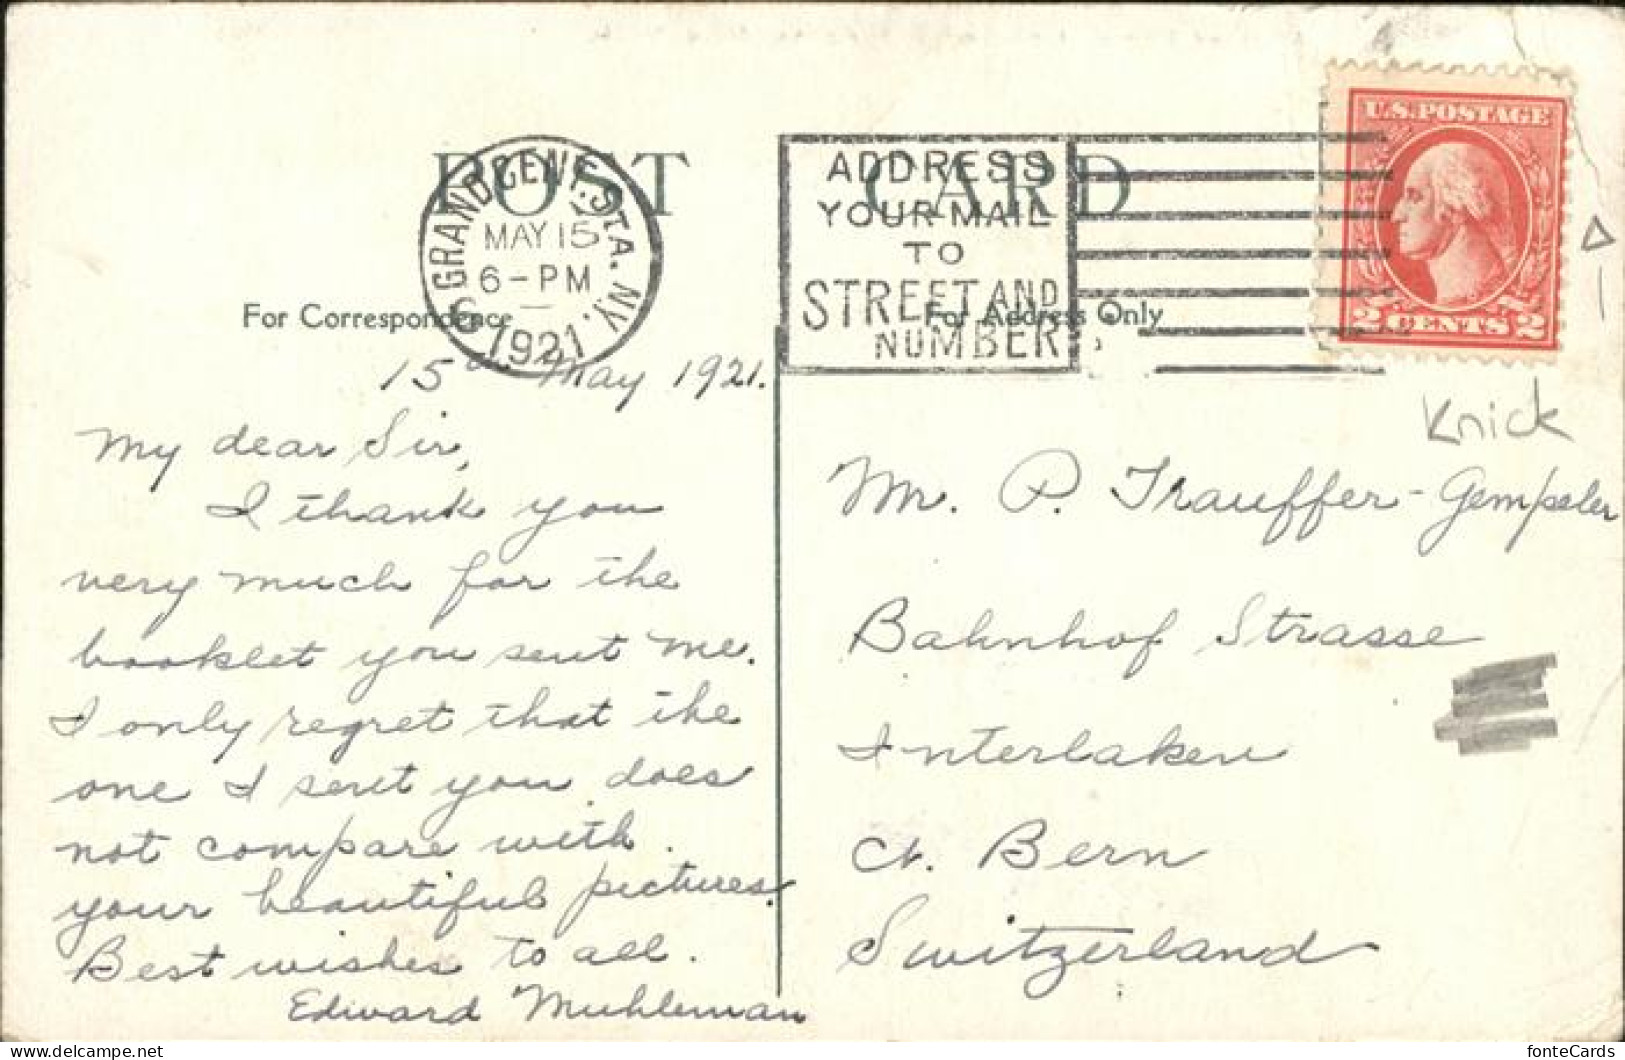 POST CARD
GRAND CENT. STA. N.Y.
MAY 15
6-PM
1921
ADDRESS
YOUR MAIL
TO
STREET AND
NUMBER
U.S. POSTAGE
2 CENTS 2
For Correspondence
For Address Only
15 May 1921.
My dear Sir,
I thank you
very much for the
booklet you sent me.
I only regret that the
one I sent you does
not compare with
your beautiful pictures.
Best wishes to all.
Edward Muhleman
Knick
Mr. P. Trauffer-Gempeler
Bahnhof Strasse
Interlaken
Ct. Bern
Switzerland
www.delcampe.net
fonteCards